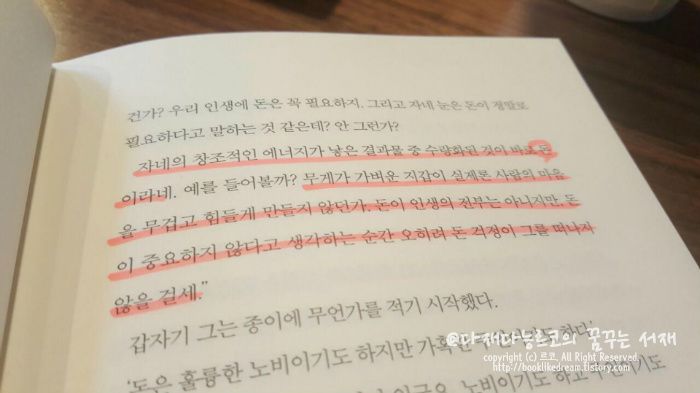 건가? 우리 인생에 돈은 꼭 필요하지. 그리고 자네 눈은 돈이 정말로
필요하다고 말하는 것 같은데? 안 그런가?
자네의 창조적인 에너지가 낳은 결과물 중 수량화된 것이 바로 돈
이라네. 예를 들어볼까? 무게가 가벼운 지갑이 실제론 사람의 마음
을 무겁고 힘들게 만들지 않던가. 돈이 인생의 전부는 아니지만, 돈
이 중요하지 않다고 생각하는 순간 오히려 돈 걱정이 그를 떠나지
않을 걸세."
갑자기 그는 종이에 무언가를 적기 시작했다.
'돈은 훌륭한 노비이기도 하지만 가혹한
노비이기도 하고
@다재다능르코의 꿈꾸는 서재
copyright (c) 르코. All Right Reserved.
http://booklikedream.tistory.com